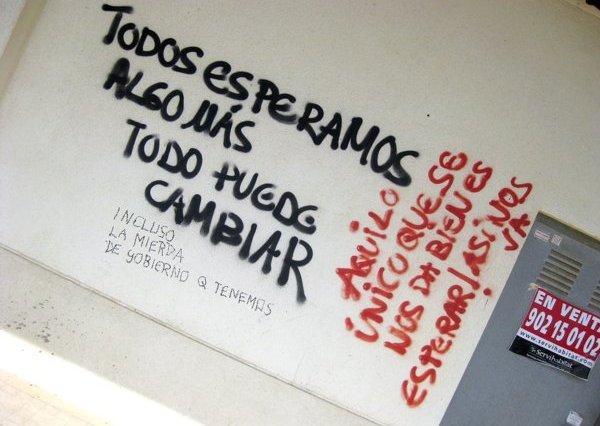 TODOS ESPERAMOS
ALGO MÁS
TODO PUEDE
CAMBIAR
INCLUSO
LA MIERDA
DE GOBIERNO Q TENEMOS
AQUÍ LO
ÚNICO QUE SE
NOS DA BIEN ES
ESPERAR / ASÍ NOS
VA
EN VENTA
902 15 01 02
www.servihabitat.com
Servihabitat